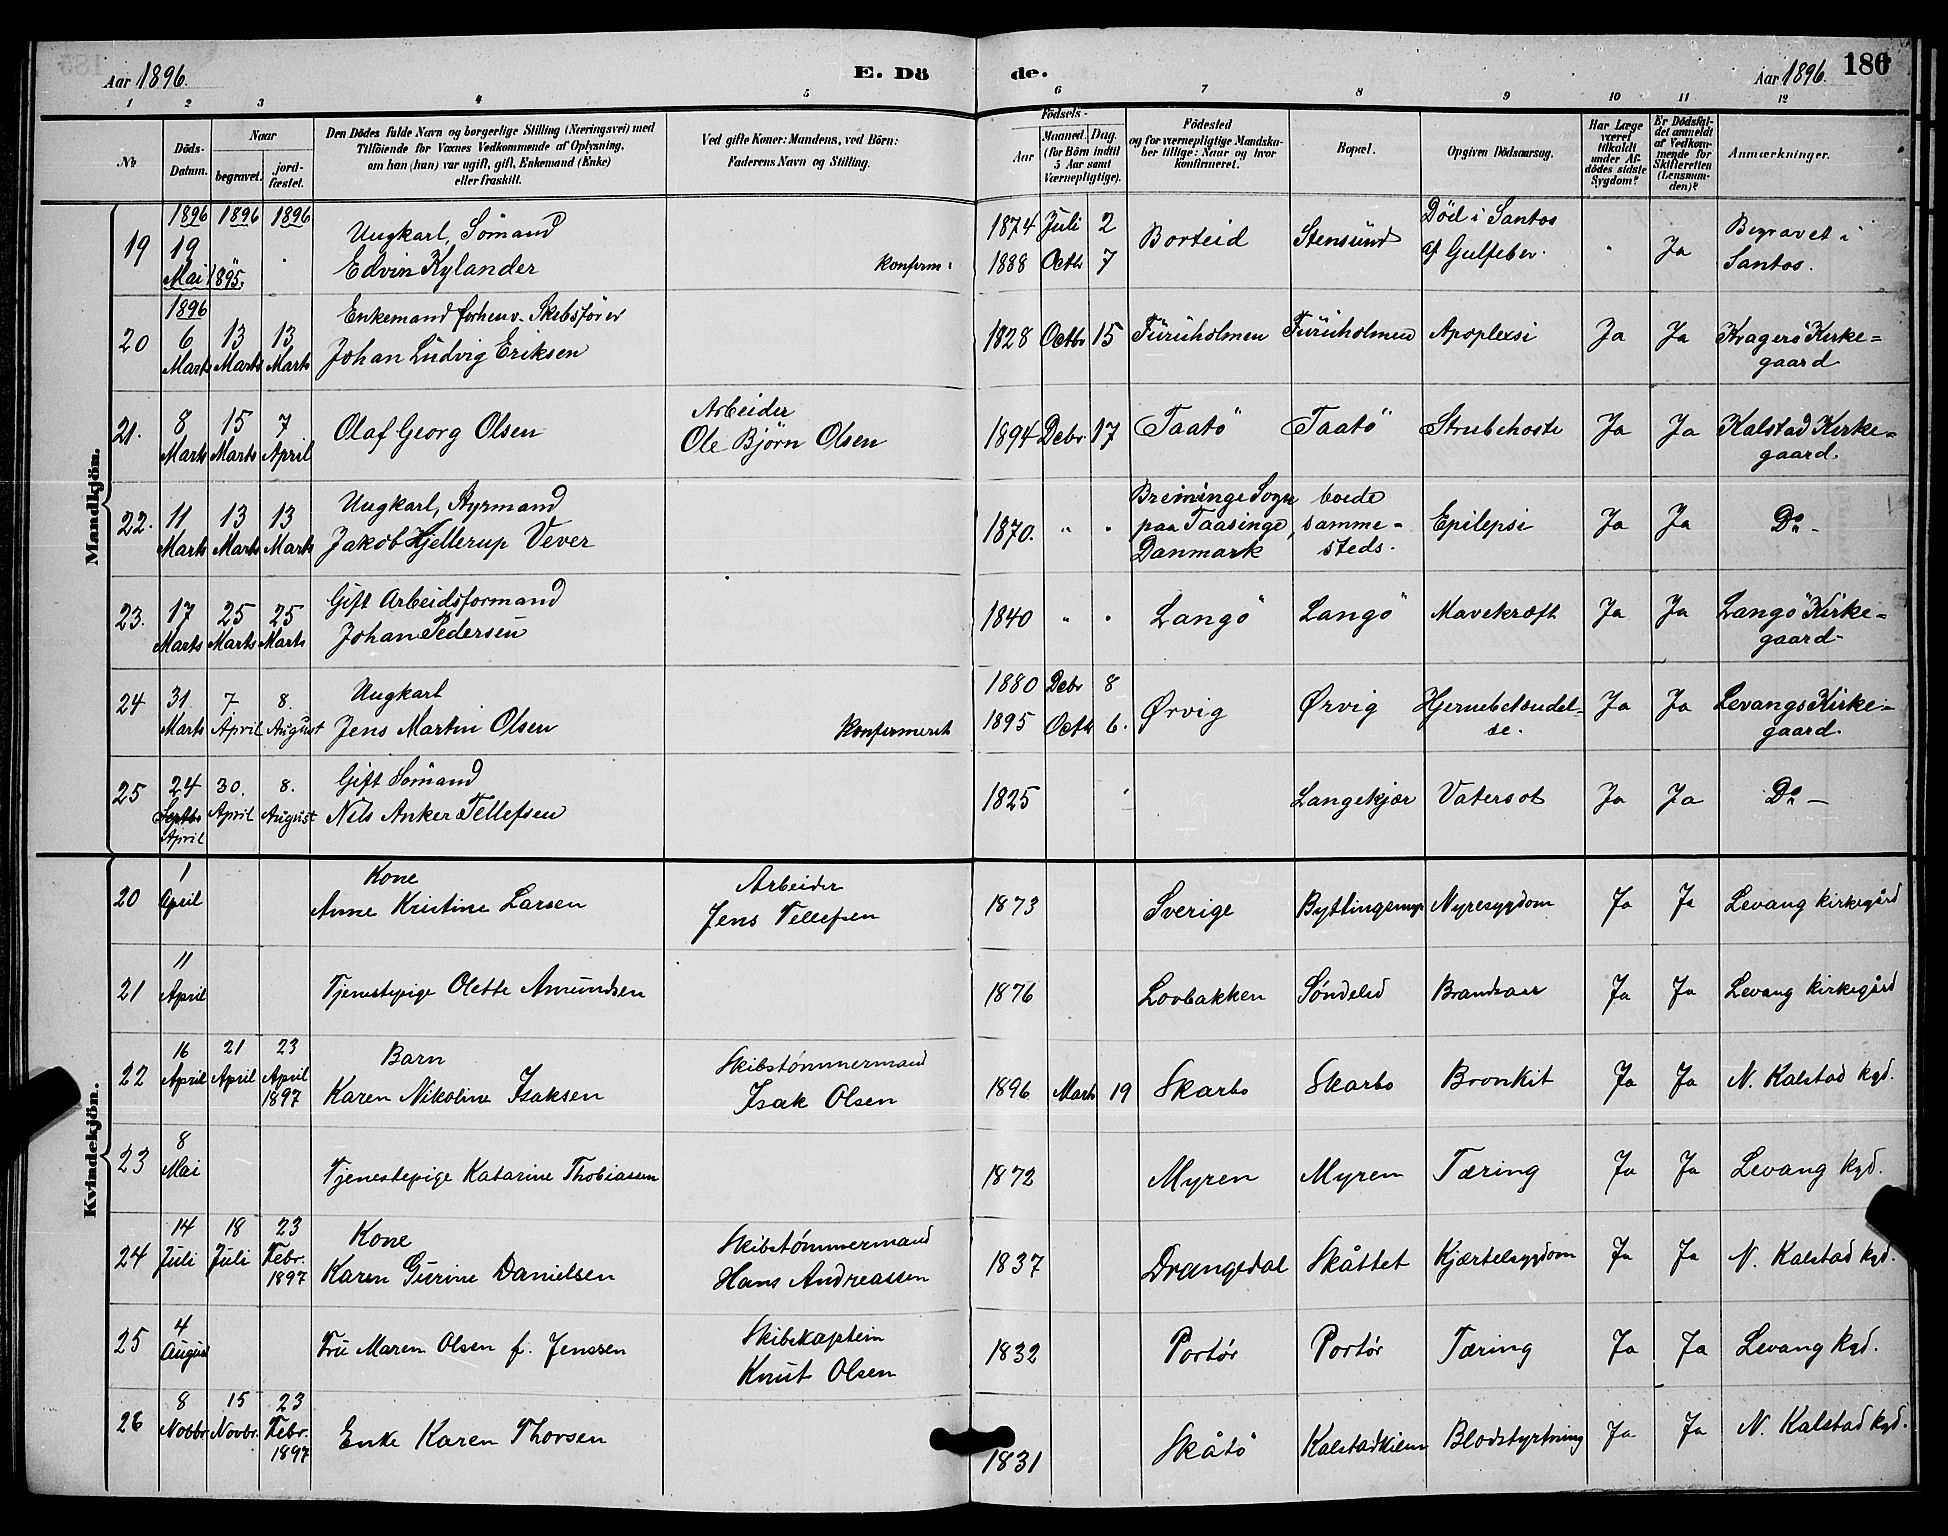 Aar 1896.
E. Dö
de.
Aar 1896.
186
1 2 3 4 5 6 7 8 9 10 11 12
No
Döds-Datum.
Naar
begravet.
jord-fæstet.
Den Dödes fulde Navn og borgerlige Stilling (Næringsvei) med
Tilföiende for Voxnes Vedkommende af Oplysning,
om han (hun) var ugift, gift, Enkemand (Enke)
eller fraskilt.
Ved gifte Koner: Mandens, ved Börn:
Faderens Navn og Stilling.
Födsels-
Aar
Maaned. Dag.
(for Börn indtil
5 Aar samt
Værnepligtige).
Födested
og for værnepligtige Mandska-
ber tillige: Naar og hvor
konfirmeret.
Bopæl.
Opgiven Dödsaarsag.
Har Læge
været
tilkaldt
under Af-
dödes sidste
Sygdom?
Er Dödsfal-
det anmeldt
af Vedkom-
mende for
Skifteretten
(Lensman-
den)?
Anmærkninger.
Mandkjön.
1896 1896 1896
19 19 Mai 1895. Ungkarl, Sömand
Edvin Kylander konferm:
1874 Juli 2
1888 Octbr 7
Borteid Stensund Död i Santos
af Gulfeber. " Ja Begravet i
Santos.
1896
20 6 Marts 13 Marts 13 Marts Enkemand forhenv. Skibsförer
Johan Ludvig Eriksen
1828 Octbr 15 Furuholmen Furuholmen Apoplexi Ja Ja Kragerö Kirke=
gaard
21. 8 Marts 15 Marts 7 April Olaf Georg Olsen Arbeider
Ole Björn Olsen
1894 Decbr 17 Taatö Taatö Strubehoste Ja Ja Kalstad Kirke=
gaard.
22. 11 Marts 13 Marts 13 Marts Ungkarl, Styrmand
Jakob Hjellerup Vever
1870. " " Breininge Sogn
paa Taasinge,
Danmark boede
samme=
steds. Epilepsi Ja Ja Do -
23. 17 Marts 25 Marts 25 Marts Gift Arbeidsformand
Johan Pedersen
1840 " " Langö Langö Mavekræft Ja Ja Langö Kirke=
gaard
24 31 Marts 7 April 8. August Ungkarl
Jens Martin Olsen Konfermeret
1880 Decbr 8
1895 Octbr 6.
Ørvig Ørvig Hjernebetændel=
se. Ja Ja Levangs Kirke=
gaard.
25 24 Septbr April 30. April 8. August Gift Sömand
Nils Anker Tellefsen
1825 Langekjær Vatersot Ja Ja Do -
Kvindekjön.
20 1 April Kone
Anne Kristine Larsen Arbeider
Jens Tellefsen
1873 Sverige Byttingsmyr Nyresygdom Ja Ja Levang kirkegård
21 11 April Tjenestepige Olette Amundsen
1876 Lovbakken Søndeled Brandsaar Ja Ja Levang kirkegård
22 16 April 21 April 23 April 1897 Barn
Karen Nikoline Isaksen Skibstømmermand
Isak Olsen
1896 Marts 19 Skarbo Skarbo Bronkit Ja Ja N. Kalstad kgd.
23 8 Mai Tjenestepige Katarine Thobiassen
1872 Myren Myren Tæring Ja Ja Levang kgd.
24 14 Juli 18 Juli 23 Febr. 1897 Kone
Karen Gurine Danielsen Skibstømmermand
Hans Andreassen
1837 Drangedal Skåttet Kjærtelsygdom Ja Ja N. Kalstad kgd.
25 4 August Fru Maren Olsen f. Jenssen Skibskaptein
Knut Olsen
1832 Portør Portør Tæring Ja Ja Levang kgd.
26 8 Novbr 15 Novbr. 23 Febr. 1897 Enke Karen Thorsen
1831 Skåtö Kalstadkilen Blodstyrtning Ja Ja N. Kalstad kgd.